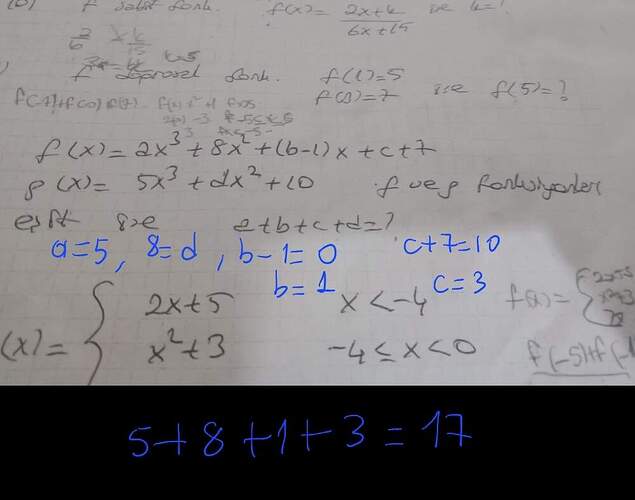 f sabit fonk. f(x) = 2x+k / 6x+15 ise k=?
f doğrusal fonk. f(1)=5
f(3)=7 ise f(5)=?
f(x)= ax³+8x²+(b-1)x+c+7
g(x)= 5x³+dx²+10 f ve g fonksiyonları
eşit ise a+b+c+d=?
a=5, 8=d, b-1=0 c+7=10
b=1 c=3
(x)= { 2x+5 x<-4 f(x)=
x²+3 -4≤x<0
5+8+1+3=17